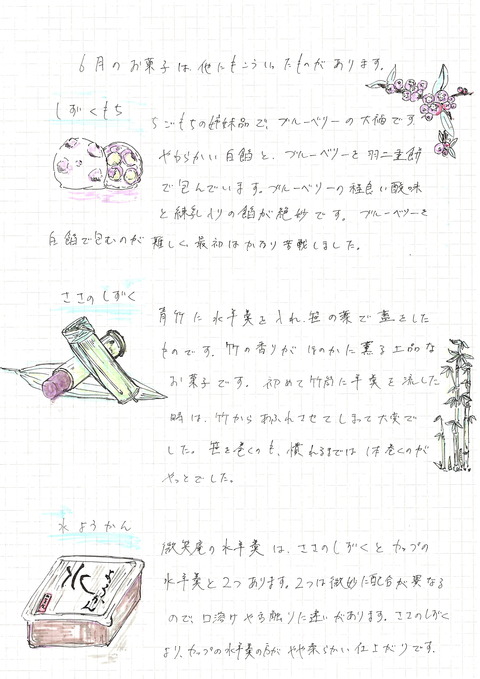 6月のお菓子は、他にもこういったものがあります。
しずくもち
いちごもちの姉妹品で、ブルーベリーの大福です。
やわらかい白餡と、ブルーベリーを羽二重餅
で包んでいます。ブルーベリーの程良い酸味
と練乳入りの餡が絶妙です。ブルーベリーを
白餡で包むのが難しく、最初はかなり苦戦しました。
ささのしずく
青竹に水羊羹を入れ、笹の葉で蓋をした
ものです。竹の香りがほのかに薫る上品な
お菓子です。初めて竹筒に羊羹を流した
時は、竹からあふれさせてしまって大変で
した。笹を巻くのも、慣れるまでは1本巻くのが
やっとでした。
水ようかん
微笑庵の水羊羹は、ささのしずくとカップの
水羊羹と2つあります。2つは微妙に配合が異なる
ので、口溶けや舌触りに違いがあります。ささのしずく
より、カップの水羊羹の方がやや柔らかい仕上がりです。
水ようかん